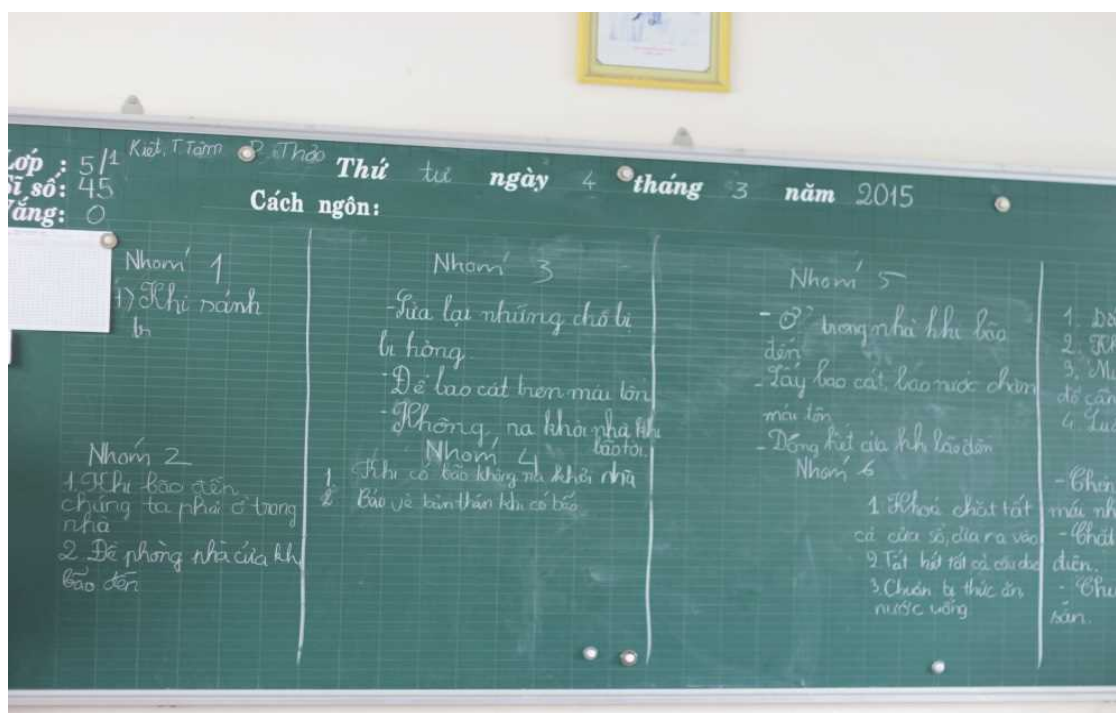 Lớp : 5/1 Kiệt, T. Tâm P. Thảo
Sĩ số: 45
Vắng: 0
Thứ tư ngày 4 tháng 3 năm 2015
Cách ngôn:
Nhóm 1
1) Khi sánh
Nhóm 2
1. Khi bão đến
chúng ta phải ở trong
nhà
2. Đề phòng nhà cửa kh
bão đến
Nhóm 3
-Sửa lại những chỗ bị
bị hỏng.
-Để bao cát trên mái tôn
-Không ra khỏi nhà khi
bão tới.
Nhóm 4
1. Khi có bão không ra khỏi nhà
2 Bảo vệ bản thân khi có bão
Nhóm 5
- Ở trong nhà khi bão
đến
- Lấy bao cát, bao nước chằn
mái tôn
- Đóng hết cửa kh bão đến
Nhóm 6
1 Khoá chặt tất
cả cửa sổ, cửa ra vào
2 Tắt hết tất cả cầu dao
3. Chuẩn bị thức ăn
nước uống
1.
2.
3.
đồ
4.
- Chằn
mái nh
- Chặt
điện.
- Chu
sẵn.